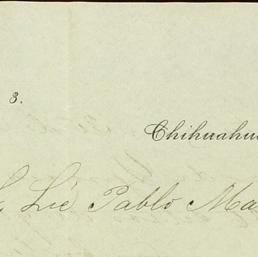 3.
Chihuahua
Lic Pablo Ma